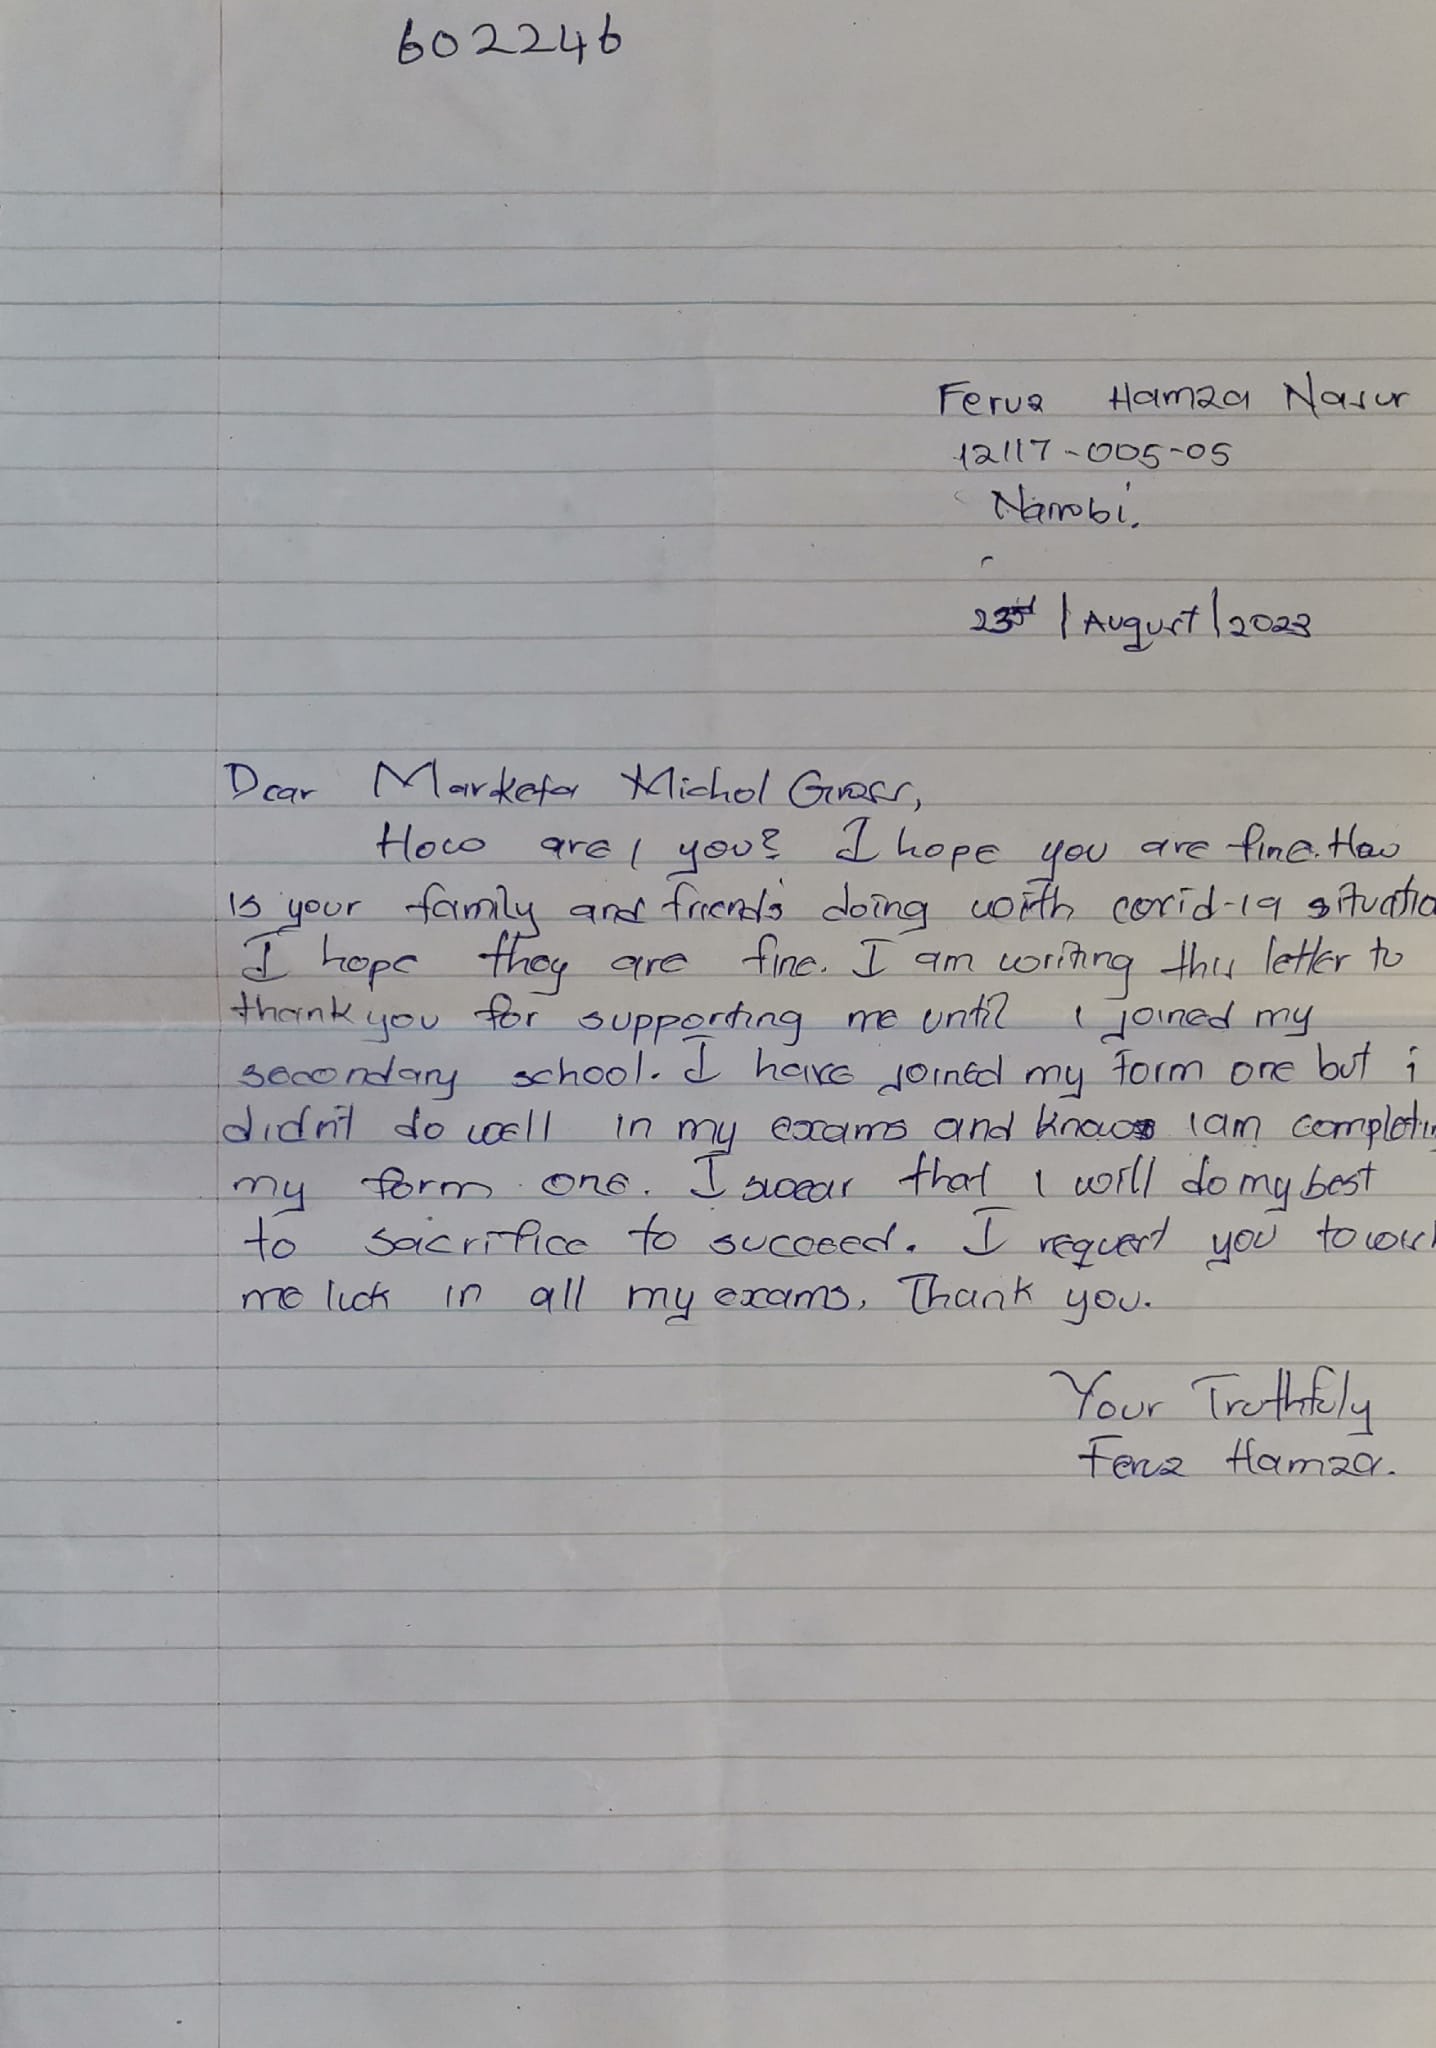 602246
Feruz Hamza Nasur
12117-005-05
Nairobi.
23rd / August / 2023
Dear Marketa Michol Gross,
How are / you? I hope you are fine. How
is your family and friends doing with covid-19 situatio
I hope they are fine. I am writing this letter to
thank you for supporting me until i joined my
secondary school. I have joined my form one but i
didn't do well in my exams and know i am completin
my form one. I swear that i will do my best
to sacrifice to succeed. I request you to wish
me luck in all my exams. Thank you.
Your Truthfuly
Feruz Hamza.